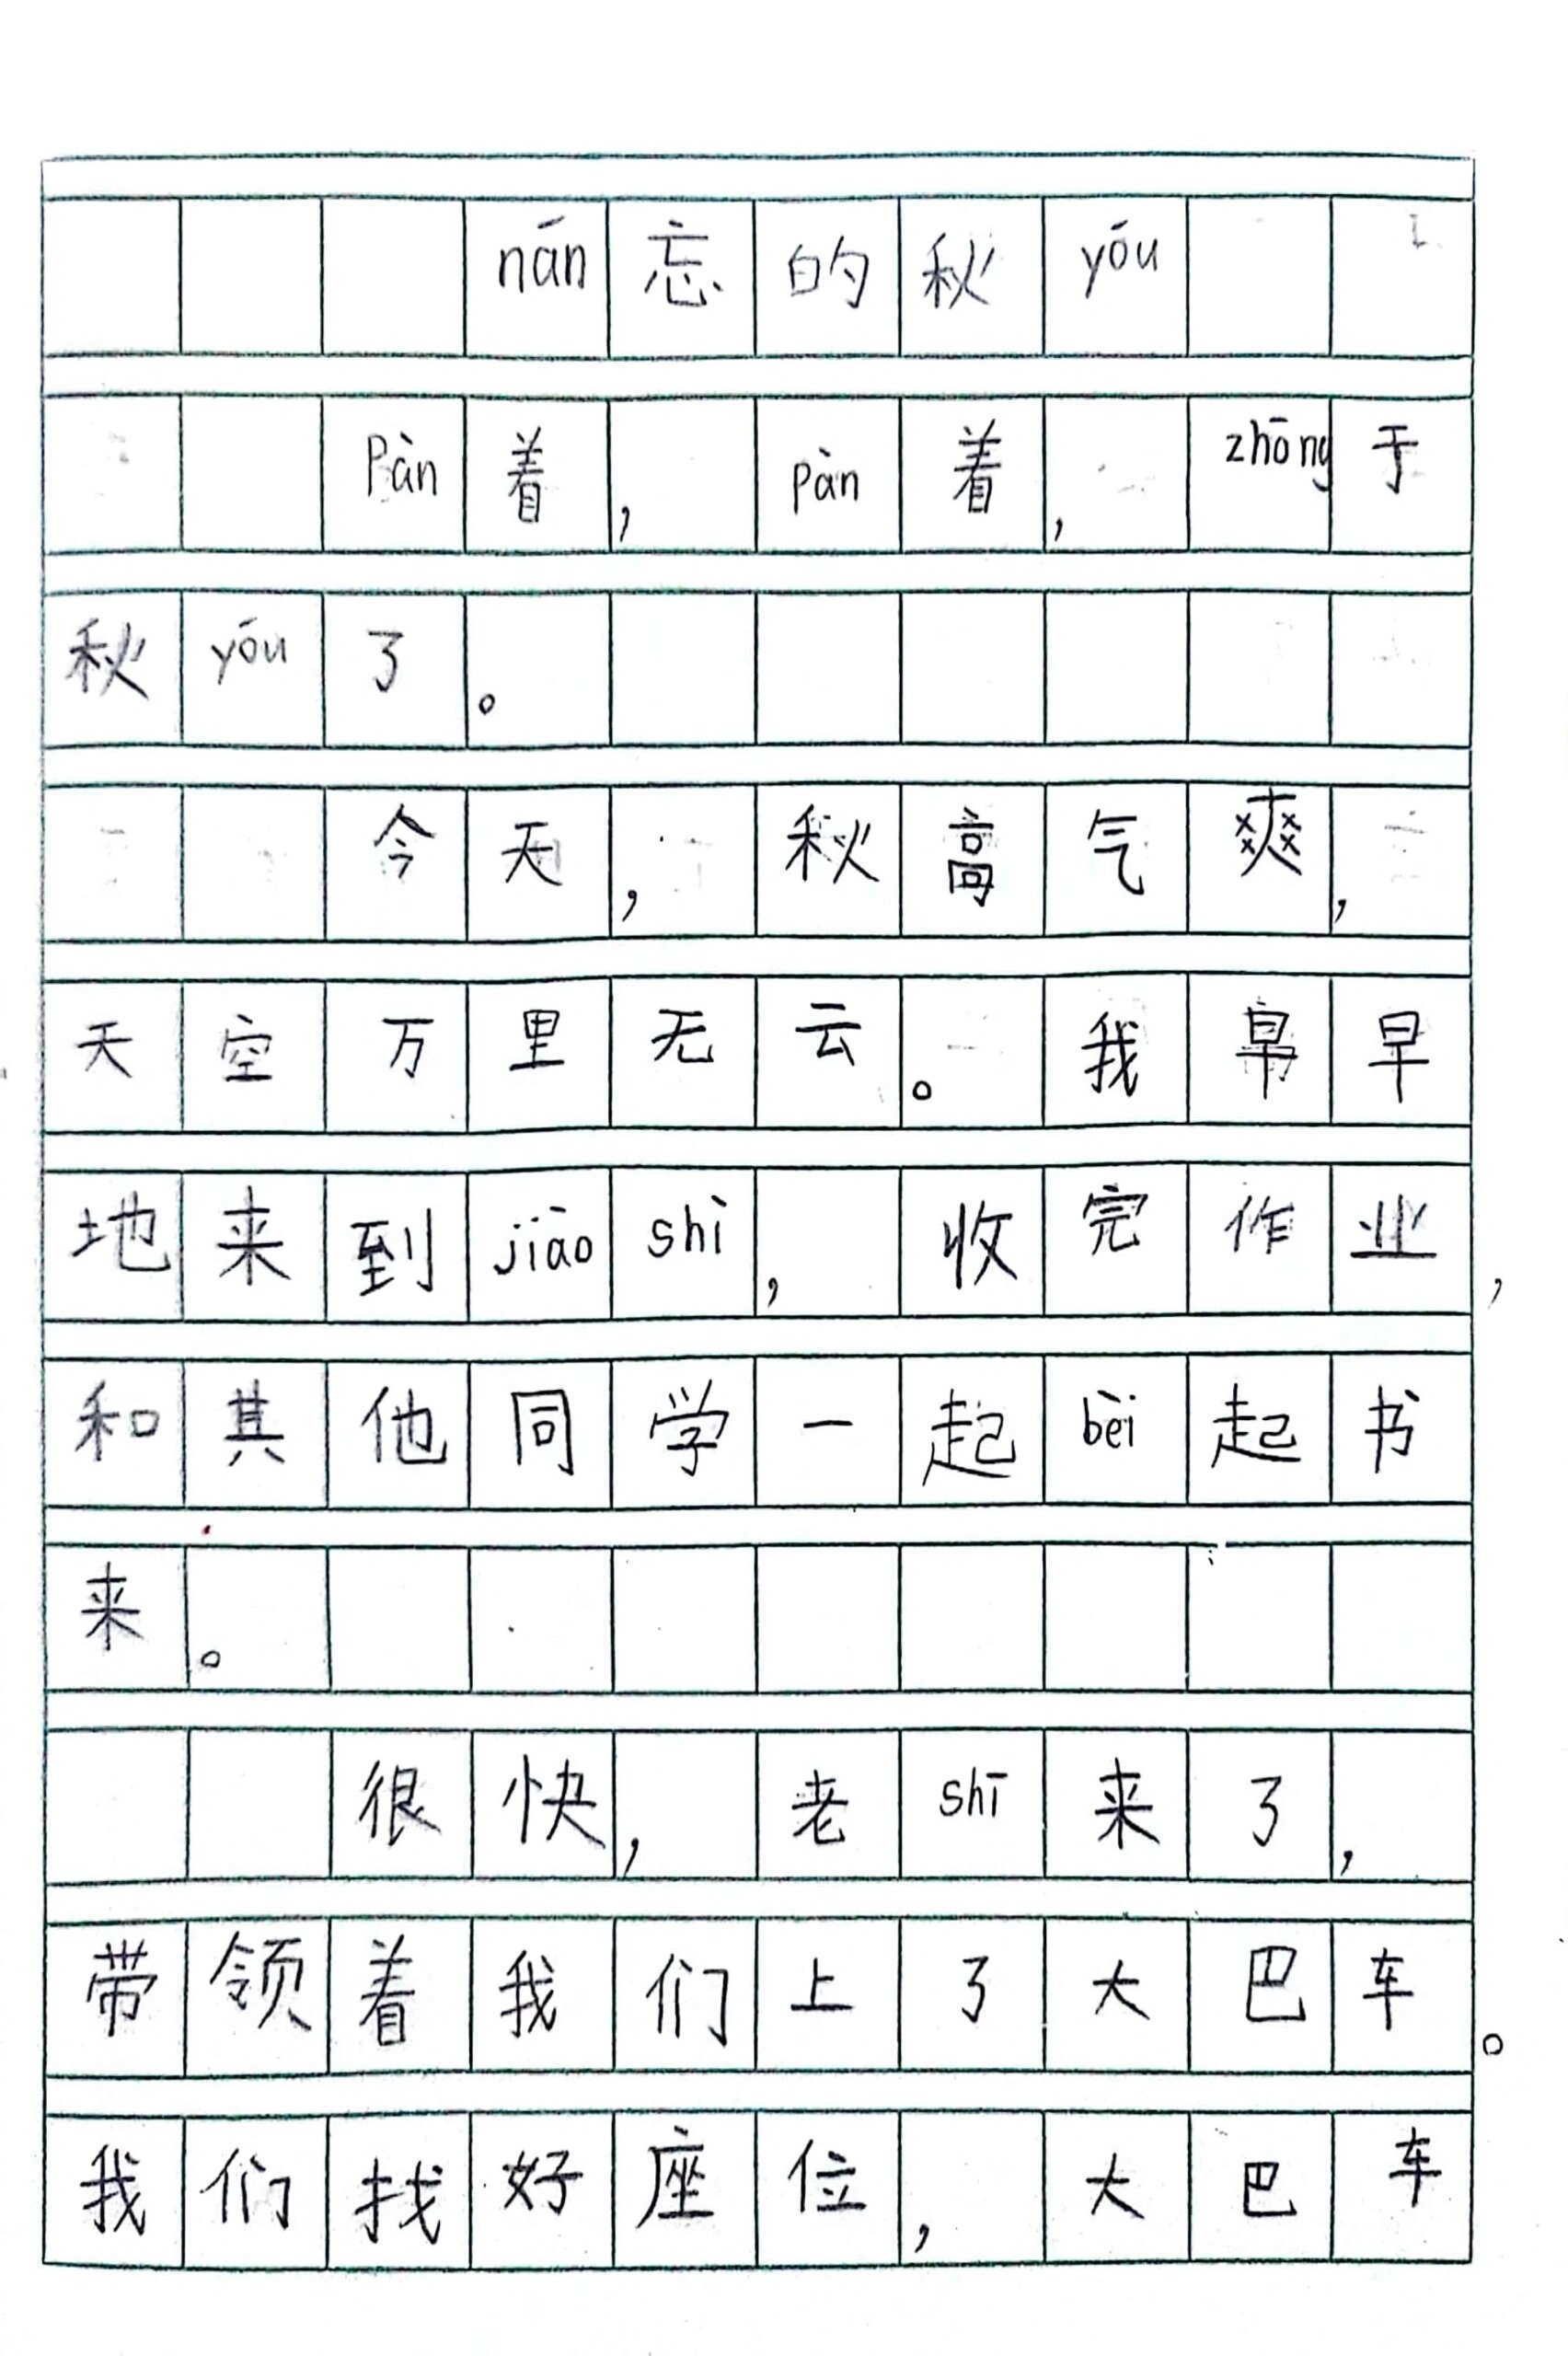 nán忘的秋yóu
Pàn着，pàn着，zhōng于
秋yóu了。
今天，秋高气爽，
天空万里无云。我早早
地来到jiào shì，收完作业，
和其他同学一起bèi起书
来。
很快，老shī来了，
带领着我们上了大巴车。
我们找好座位，大巴车